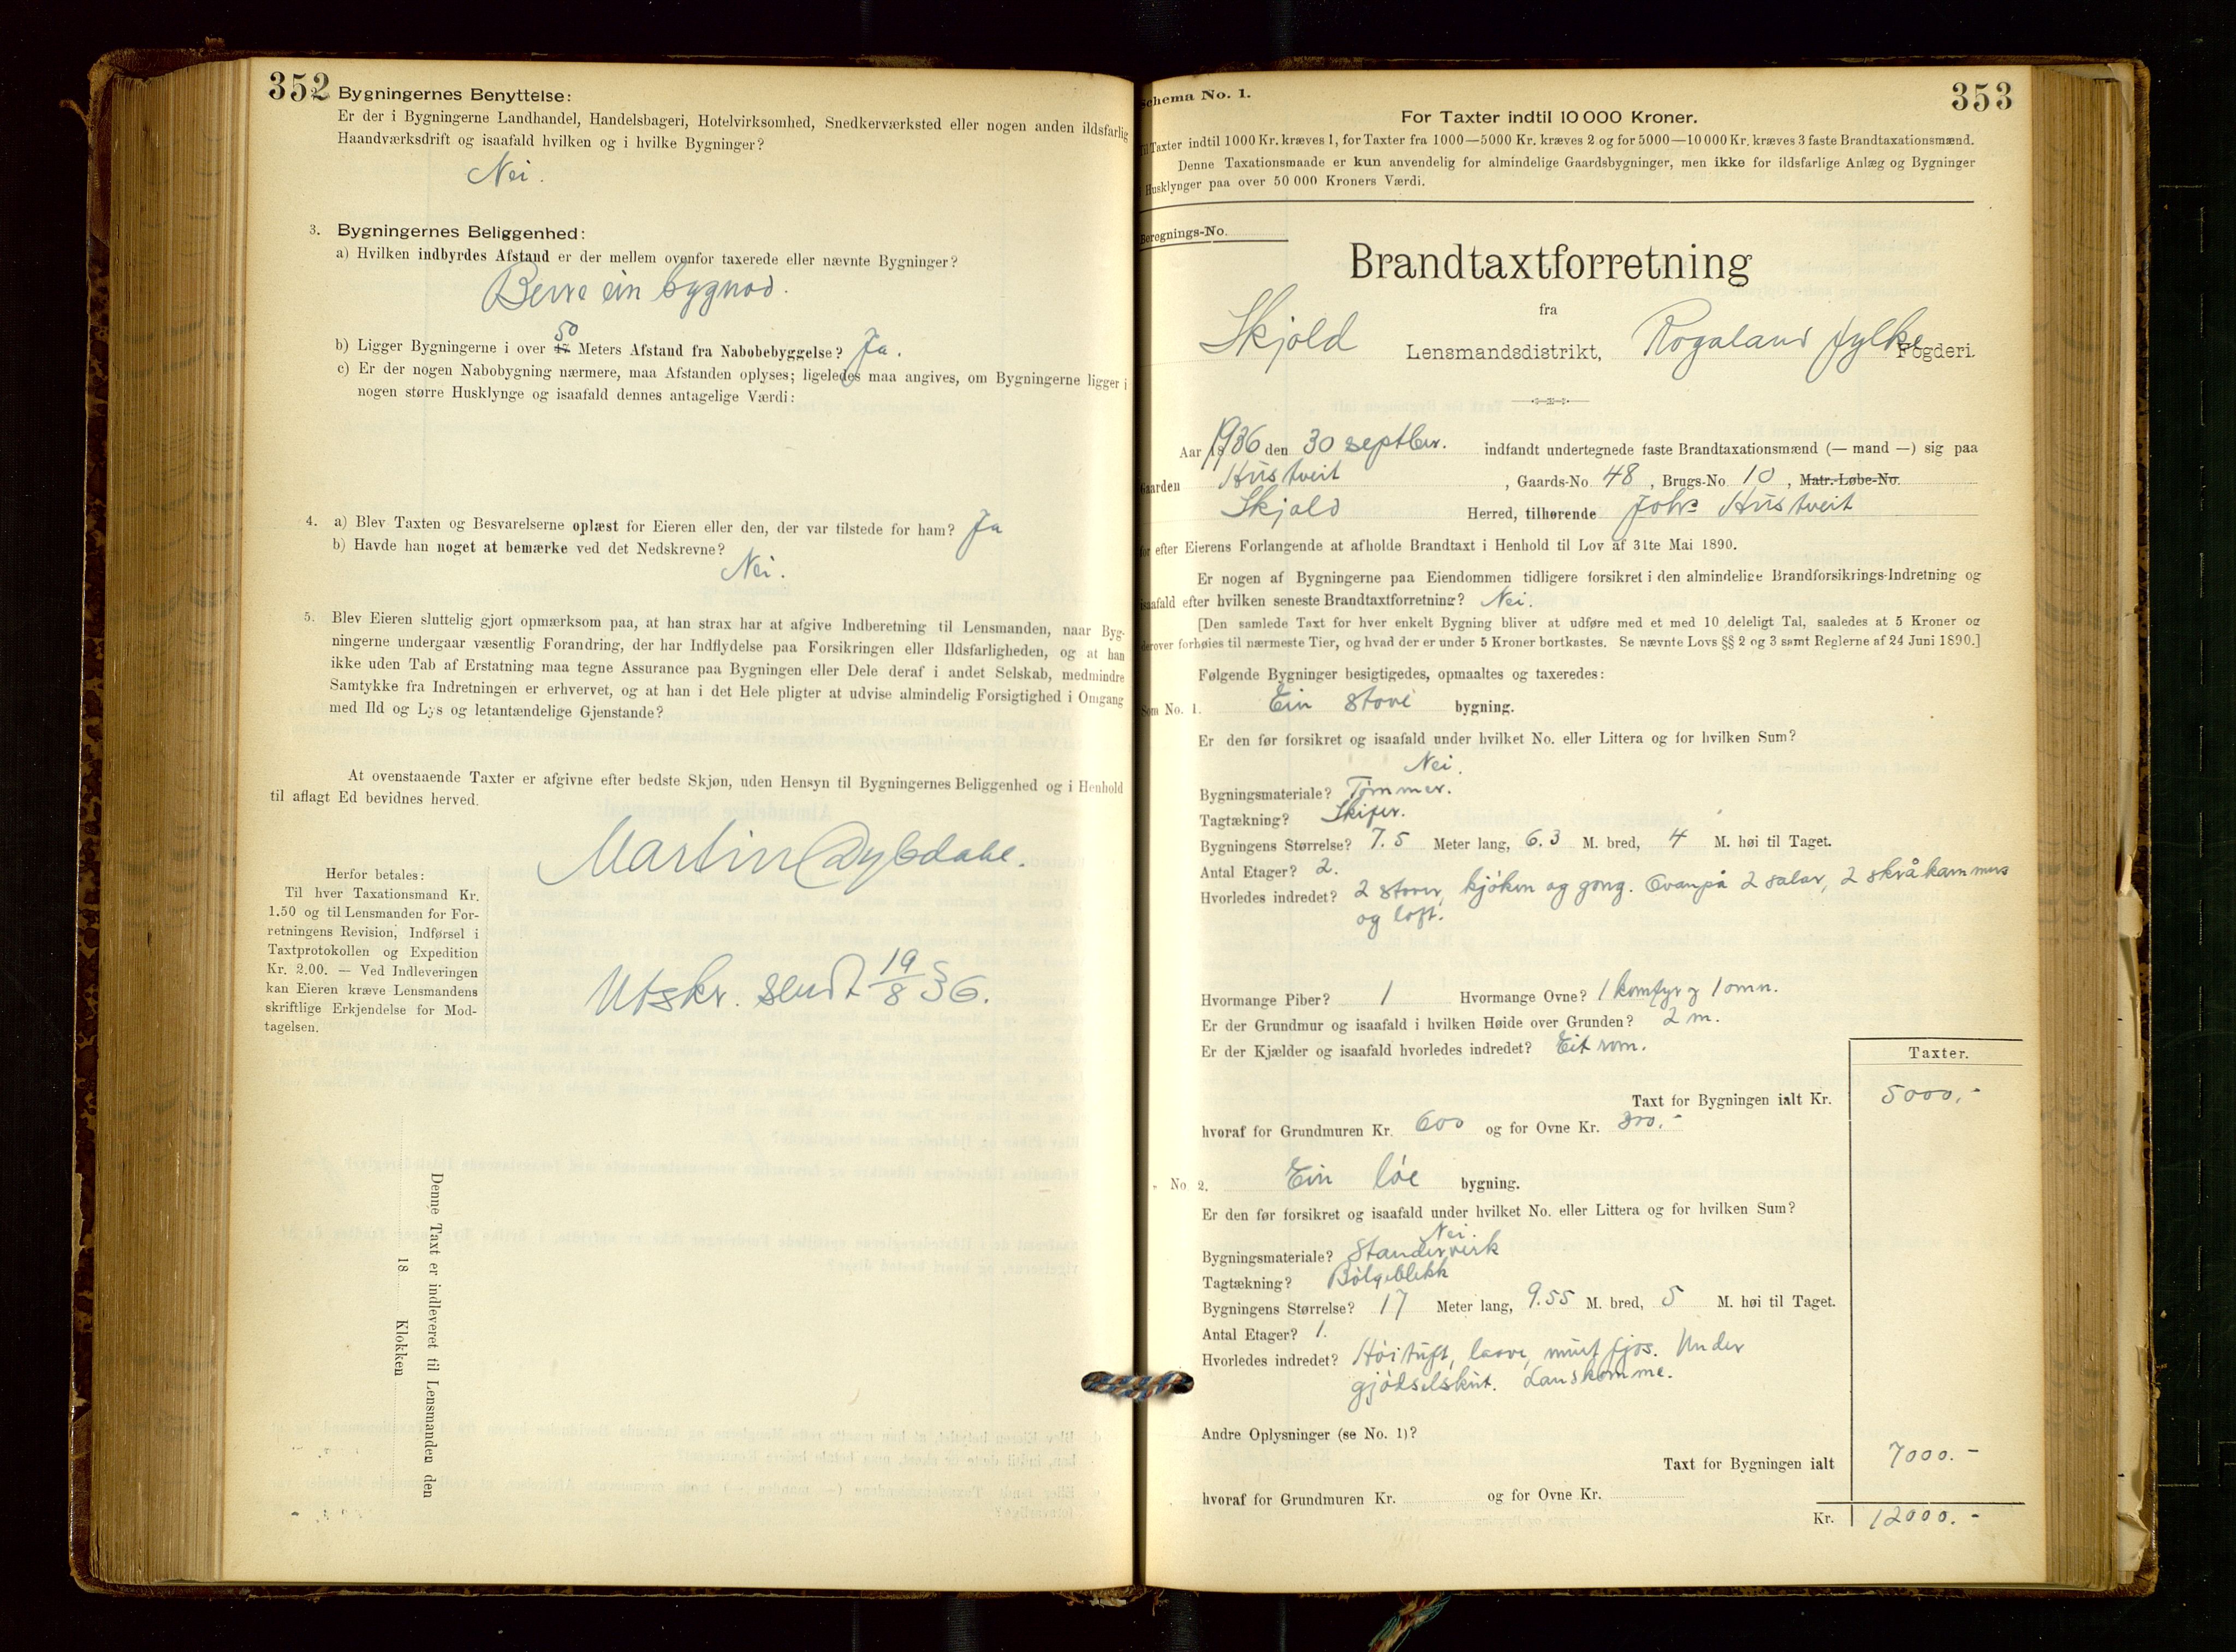 352 Bygningernes Benyttelse:
Er der i Bygningerne Landhandel, Handelsbageri, Hotelvirksomhed, Snedkerværksted eller nogen anden ildsfarlig
Haandværksdrift og isaafald hvilken og i hvilke Bygninger?
Nei.
3. Bygningernes Beliggenhed:
a) Hvilken indbyrdes Afstand er der mellem ovenfor taxerede eller nævnte Bygninger?
Berre ein bygnad.
b) Ligger Bygningerne i over 50 Meters Afstand fra Nabobebyggelse? Ja.
c) Er der nogen Nabobygning nærmere, maa Afstanden oplyses; ligeledes maa angives, om Bygningerne ligger i
nogen større Husklynge og isaafald dennes antagelige Værdi:
4. a) Blev Taxten og Besvarelserne oplæst for Eieren eller den, der var tilstede for ham? Ja
b) Havde han noget at bemærke ved det Nedskrevne?
Nei.
5. Blev Eieren sluttelig gjort opmærksom paa, at han strax har at afgive Indberetning til Lensmanden, naar Byg-
ningerne undergaar væsentlig Forandring, der har Indflydelse paa Forsikringen eller Ildsfarligheden, og at han
ikke uden Tab af Erstatning maa tegne Assurance paa Bygningen eller Dele deraf i andet Selskab, medmindre
Samtykke fra Indretningen er erhvervet, og at han i det Hele pligter at udvise almindelig Forsigtighed i Omgang
med Ild og Lys og letantændelige Gjenstande?
At ovenstaaende Taxter er afgivne efter bedste Skjøn, uden Hensyn til Bygningernes Beliggenhed og i Henhold
til aflagt Ed bevidnes herved.
Martin Dybdahl.
Herfor betales:
Til hver Taxationsmand Kr.
1.50 og til Lensmanden for For-
retningens Revision, Indførsel i
Taxtprotokollen og Expedition
Kr. 2.00. — Ved Indleveringen
kan Eieren kræve Lensmandens
skriftlige Erkjendelse for Mod-
tagelsen.
Utskr. sendt 19/8 36.
Denne Taxt er indleveret til Lensmanden den
18 Klokken
353
Schema No. 1.
For Taxter indtil 10 000 Kroner.
Til Taxter indtil 1000 Kr. kræves 1, for Taxter fra 1000—5000 Kr. kræves 2 og for 5000—10 000 Kr. kræves 3 faste Brandtaxationsmænd.
Denne Taxationsmaade er kun anvendelig for almindelige Gaardsbygninger, men ikke for ildsfarlige Anlæg og Bygninger
i Husklynger paa over 50 000 Kroners Værdi.
Beregnings-No.
Brandtaxtforretning
fra
Skjold Lensmandsdistrikt, Rogaland fylke Fogderi.
Aar 1936 den 30 septbr. indfandt undertegnede faste Brandtaxationsmænd (— mand —) sig paa
Gaarden Hustveit, Gaards-No 48, Brugs-No 10, Matr.-Løbe-No.
Skjold Herred, tilhørende Johs Hustveit
for efter Eierens Forlangende at afholde Brandtaxt i Henhold til Lov af 31te Mai 1890.
Er nogen af Bygningerne paa Eiendommen tidligere forsikret i den almindelige Brandforsikrings-Indretning og
isaafald efter hvilken seneste Brandtaxtforretning? Nei.
[Den samlede Taxt for hver enkelt Bygning bliver at udføre med et med 10 deleligt Tal, saaledes at 5 Kroner og
derover forhøies til nærmeste Tier, og hvad der er under 5 Kroner bortkastes. Se nævnte Lovs §§ 2 og 3 samt Reglerne af 24 Juni 1890.]
Følgende Bygninger besigtigedes, opmaaltes og taxeredes:
Som No. 1. Ein stove bygning.
Er den før forsikret og isaafald under hvilket No. eller Littera og for hvilken Sum?
Nei.
Bygningsmateriale? Tømmer.
Tagtækning? Skifer.
Bygningens Størrelse? 7.5 Meter lang, 6.3 M. bred, 4 M. høi til Taget.
Antal Etager? 2.
Hvorledes indredet? 2 stover, kjøken og gong. Ovanpå 2 salar, 2 skråkammers
og loft.
Hvormange Piber? 1 Hvormange Ovne? 1 komfyr og 1 omn.
Er der Grundmur og isaafald i hvilken Høide over Grunden? 2 m.
Er der Kjælder og isaafald hvorledes indredet? Eit rom.
Taxter.
Taxt for Bygningen ialt Kr. 5000.-
hvoraf for Grundmuren Kr. 600 og for Ovne Kr. 300.-
" No 2. Ein løe bygning.
Er den før forsikret og isaafald under hvilket No. eller Littera og for hvilken Sum?
Nei.
Bygningsmateriale? Standerverk
Tagtækning? Bølgeblekk
Bygningens Størrelse? 17 Meter lang, 9.55 M. bred, 5 M. høi til Taget.
Antal Etager? 1.
Hvorledes indredet? Høituft, laave, murt fjos. Under
gjødselskut. Landkomme.
Andre Oplysninger (se No. 1)?
Taxt for Bygningen ialt 7000.-
hvoraf for Grundmuren Kr. og for Ovne Kr.
Kr. 12000.-